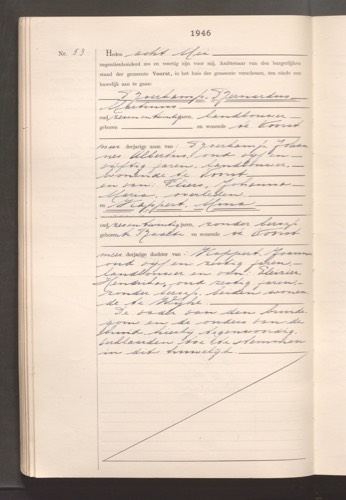 1946
Nr. 53 Heden acht Mei
negentienhonderd zes en veertig zijn voor mij, Ambtenaar van den burgerlijken
stand der gemeente Voorst, in het huis der gemeente verschenen, ten einde een
huwelijk aan te gaan:
Martinus
oud zeven en twintig jaren, landbouwer
geboren en wonende te Voorst
meerderjarige zoon van: Johan
nes Albertus, oud vijf en
vijftig jaren, landbouwer,
wonende te Voorst
en van: Johanna
Maria, overleden
en Kappert, Mina
oud zeven twintig jaren, zonder beroep
geboren te Raalte en wonende te Voorst
meerderjarige dochter van: Kappert,
oud vijf en zestig jaren,
landbouwer en van:
Hendrika, oud zestig jaren,
zonder beroep, beiden wonen
de te Wijhe
De vader van den bruide
gom en de ouders van de
bruid, hierbij tegenwoordig,
verklaarden toe te stemmen
in dit huwelijk